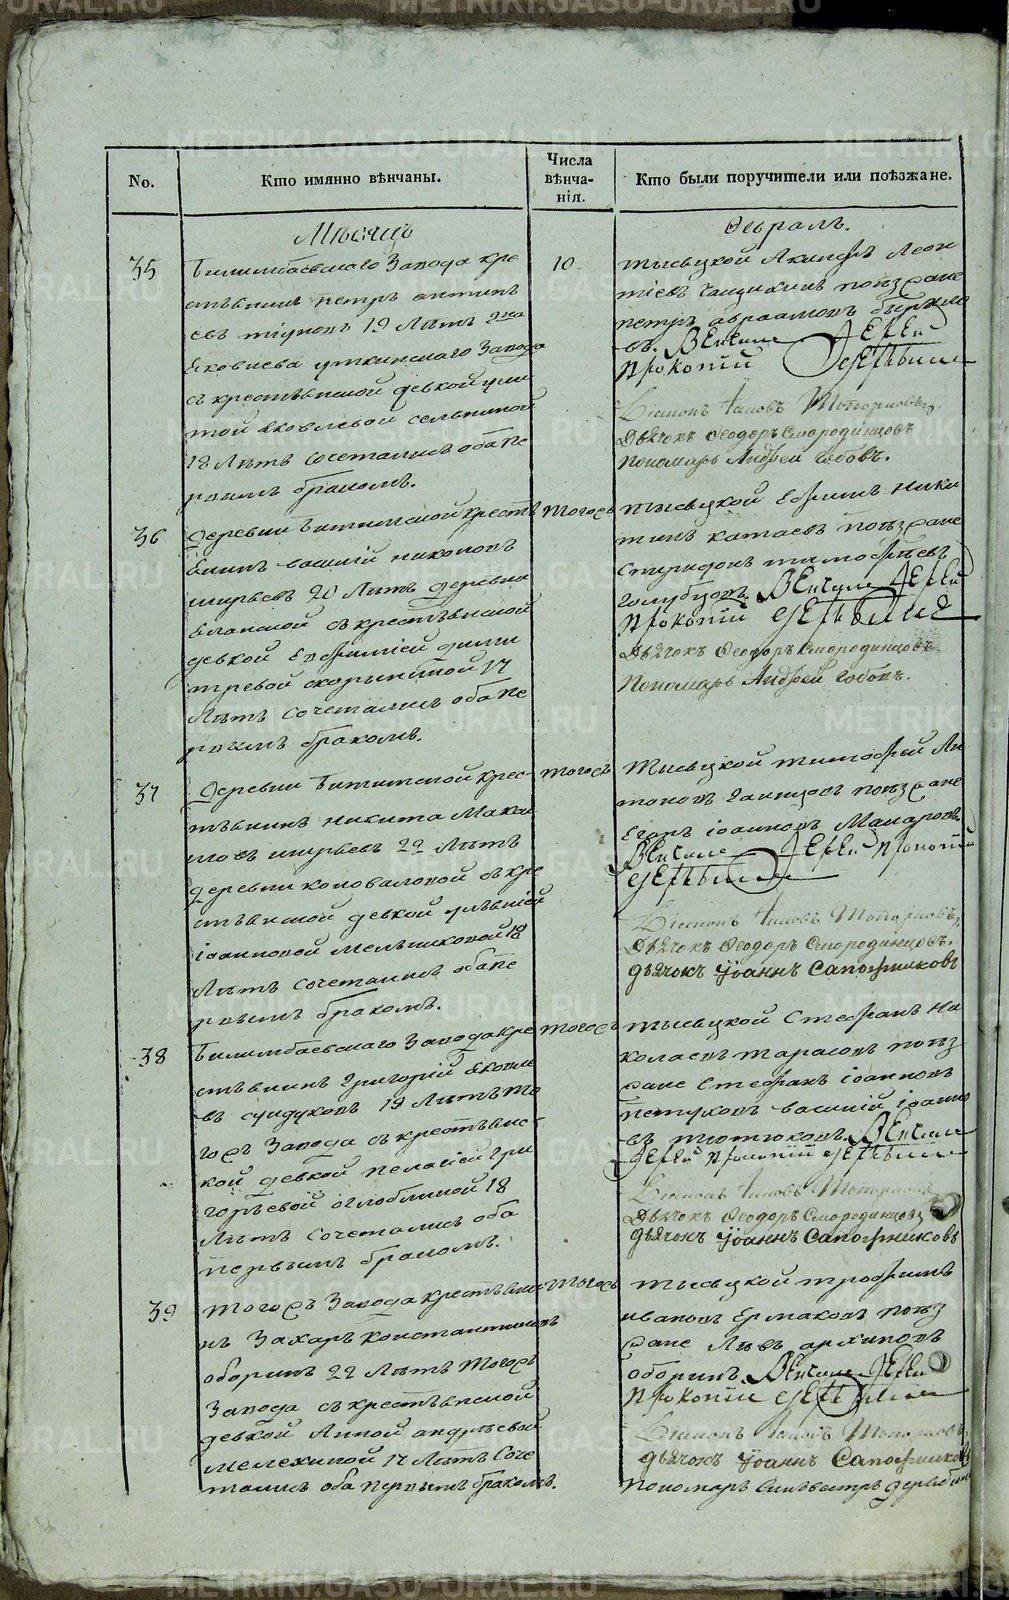 No.
Кто имянно вѣнчаны.
Числа
вѣнча-
нія.
Кто были поручители или поѣзжане.
Мѣсяцъ
Февраль.
35
Билимбаевскаго Завода кре
стьянинъ петръ антипъ
евъ 19 Лѣтъ
уткинскаго Завода
съ крестьянской девкой ули
той яковлевой
18 Лѣтъ сочетались оба пе
рвымъ бракомъ.
10
тысяцкой Акинфъ Леон
тіевъ поѣзжане
петръ авраамовъ
въ. Венчали Іерей
Прокопій
Діаконъ Іаковъ Топорковъ,
Дьячокъ Ѳеодоръ Смородинцовъ
Пономарь Андрей
36
деревни Битимской кресть
янинъ василій никоновъ
ширяевъ 20 Лѣтъ деревни
съ крестьянской
девкой Евфиміей дими
тревой 17
Лѣтъ сочетались оба пе
рвымъ бракомъ.
тогожъ
тысяцкой Ефимъ ники
тинъ катаевъ поѣзжане
спиридонъ тимофѣевъ
голубцовъ. Венчали Іерей
Прокопій
Дьячокъ Ѳеодоръ Смородинцовъ
Пономарь Андрей
37
деревни Битимской крес-
тьянинъ никита Макси
мовъ ширяевъ 22 Лѣтъ
деревни коноваловой съ кре
стьянской девкой
іоанновой мельниковой 18
Лѣтъ сочетались оба пе
рвымъ бракомъ.
тогожъ
тысяцкой тимофей Ан
тоновъ поѣзжане
Егоръ іоанновъ Макаровъ.
Венчали Іерей Прокопій
Діаконъ Іаковъ Топорковъ,
Дьячокъ Ѳеодоръ Смородинцовъ.
дьячокъ Іоаннъ Сапожниковъ
38
Билимбаевскаго Завода кре
стьянинъ Григорій яковле
въ сундуковъ 19 Лѣтъ то
гожъ Завода съ крестьянс-
кой девкой пелагіей гри
горьевой оглоблиной 18
Лѣтъ сочетались оба
первымъ бракомъ.
тогожъ
тысяцкой Стефанъ Ни
колаевъ тарасовъ поѣз
жане Стефанъ іоанновъ
петуховъ василій іоанно
въ тютюковъ. Венчали
Іерей Прокопій
Діаконъ Іаковъ Топорковъ
Дьячокъ Ѳеодоръ Смородинцовъ
дьячокъ Іоаннъ Сапожниковъ
39
тогожъ Завода крестьяни
нъ Захаръ константиновъ
оборинъ 22 Лѣтъ тогожъ
Завода съ крестьянской
девкой Анной андреевой
мелехиной 17 Лѣтъ соче
тались оба первымъ бракомъ.
тогожъ
тысяцкой трофимъ
ивановъ Ермаковъ поѣз
жане Левъ архиповъ
оборинъ. Венчали Іерей
Прокопій
Діаконъ Іаковъ Топорковъ,
дьячокъ Іоаннъ Сапожниковъ
пономарь Сильвестръ
METRIKI.GASO-URAL.RU